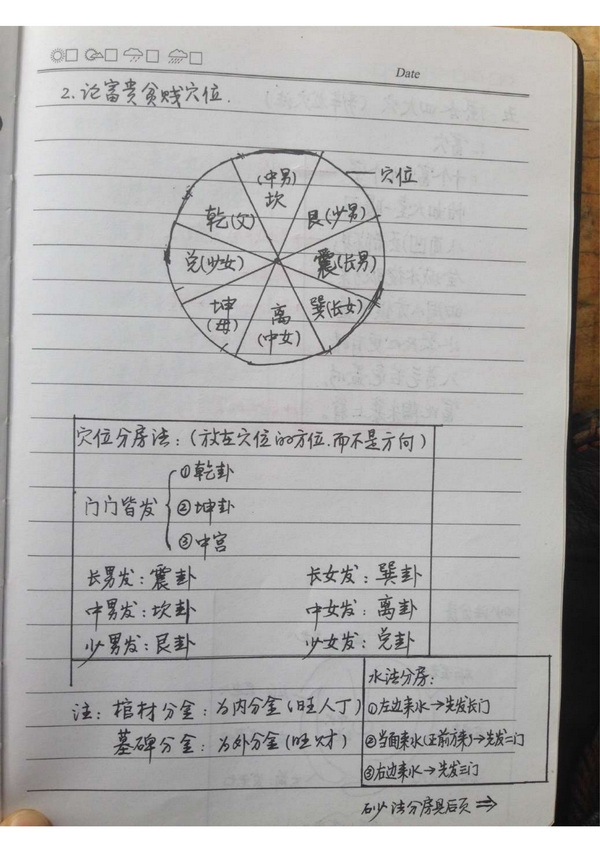 Date
2.论富贵贫贱穴位.
(中男)
坎
穴位
乾(父)
艮(少男)
兑(少女)
震(长男)
坤
(母)
离
(中女)
巽(长女)
穴位分房法:(放在穴位的方位.而不是方向)
门门皆发
①乾卦
②坤卦
③中宫
长男发:震卦 长女发:巽卦
中男发:坎卦 中女发:离卦
少男发:艮卦 少女发:兑卦
水法分房:
①左边来水→先发长门
②当面来水(正前方来)→先发二门
③右边来水→先发三门
注:棺材分金:为内分金(旺人丁)
墓碑分金:为外分金(旺财)
砂法分房见后页⇒